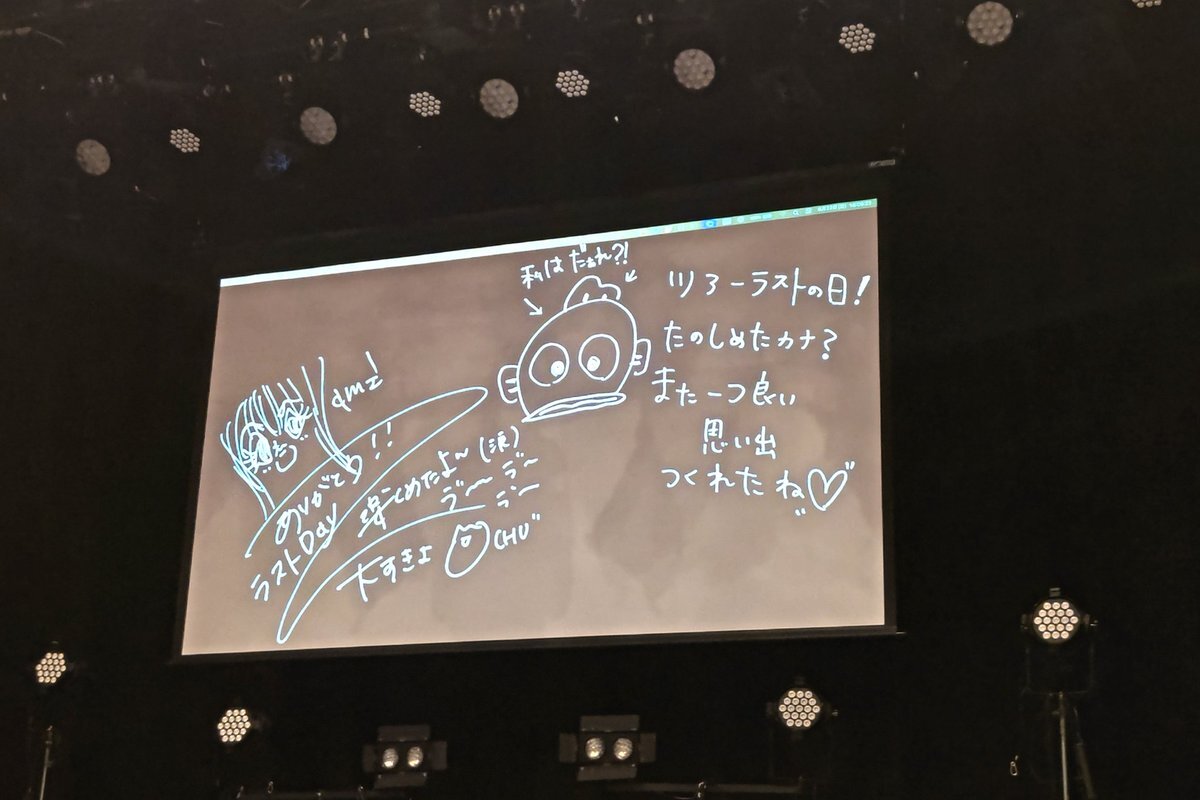 私はだぁれ?!
ツアーラストの日!
たのしめたカナ?
また一つ良い
思い出
つくれたね♡
ありがと♡!!
ラストDay
楽しめたよ〜(涙)
ラ〜ラ〜
ラ〜
大すきよ
CHU